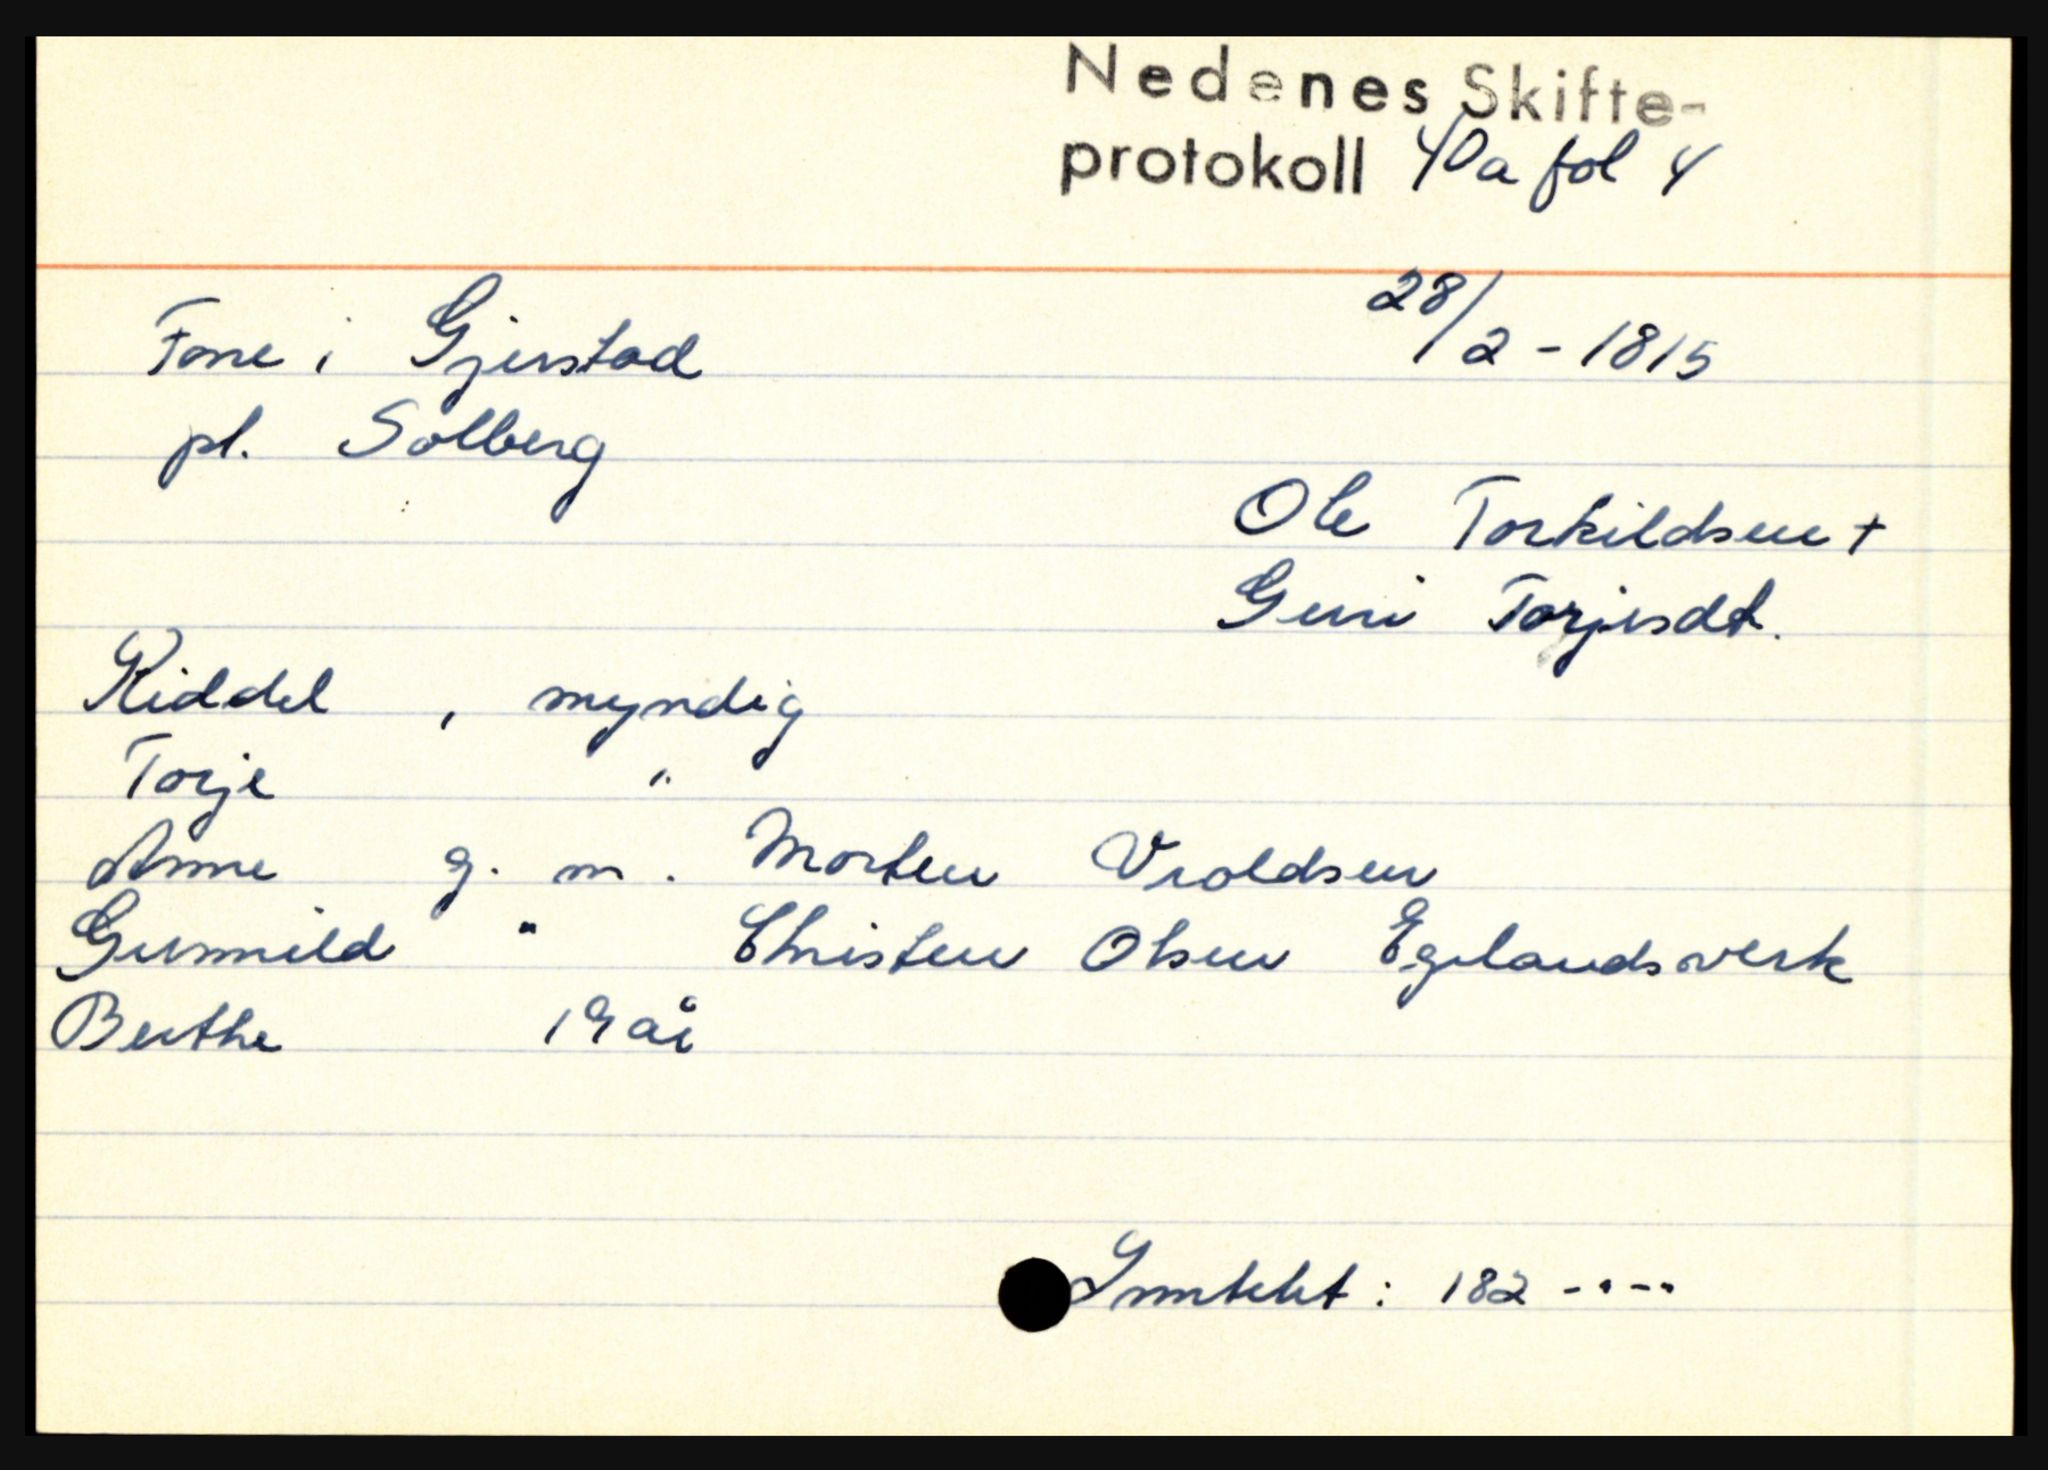 Nedenes Skifte-
protokoll 40a fol 4
Fone i Gjerstad 28/2-1815
pl. Solberg
Ole Torkildsen +
Guri Torjesdt.
Kiddel , myndig
Torje "
Anne g. m. Morten Vroldsen
Gunnild " Christen Olsen Egelandsverk
Berthe 19 år
Inntekt : 182 -·--